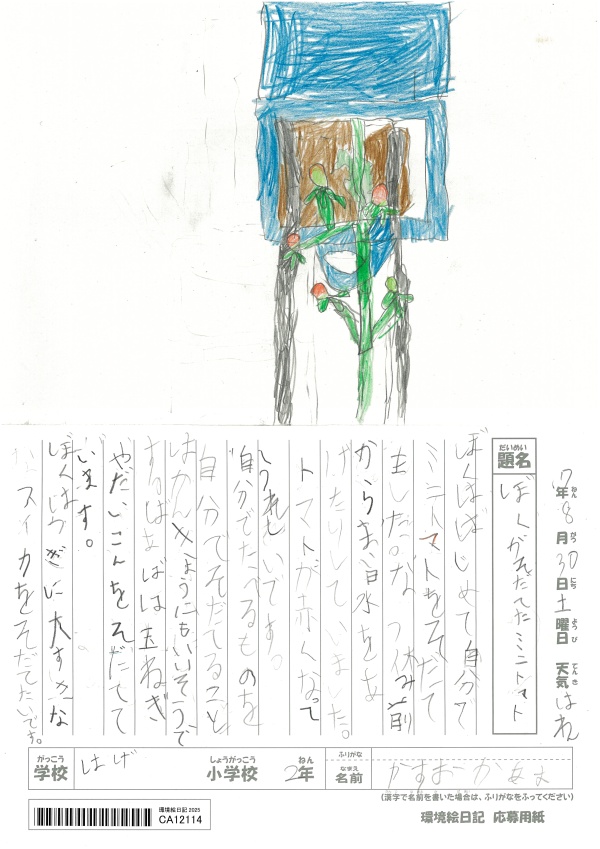 7年8月30日土曜日 天気はれ
題名 ぼくがそだてたミニトマト
ぼくははじめて自分で
ミニトマトをそだて
ました。なつ休み前
からまい日水をあ
げたりしていました。
トマトが赤くなって
うれしいです。
自分でたべるものを
自分でそだてること
はかんきょうにもいいそうで
す。はたばは玉ねぎ
やだいこんをそだてて
います。
ぼくはつぎに大すきな
スイカをそだてたいです。
学校 はげ 小学校 2年 ふりがな 名前
(漢字で名前を書いた場合は、ふりがなをふってください)
環境絵日記 2025
CA12114
環境絵日記 応募用紙